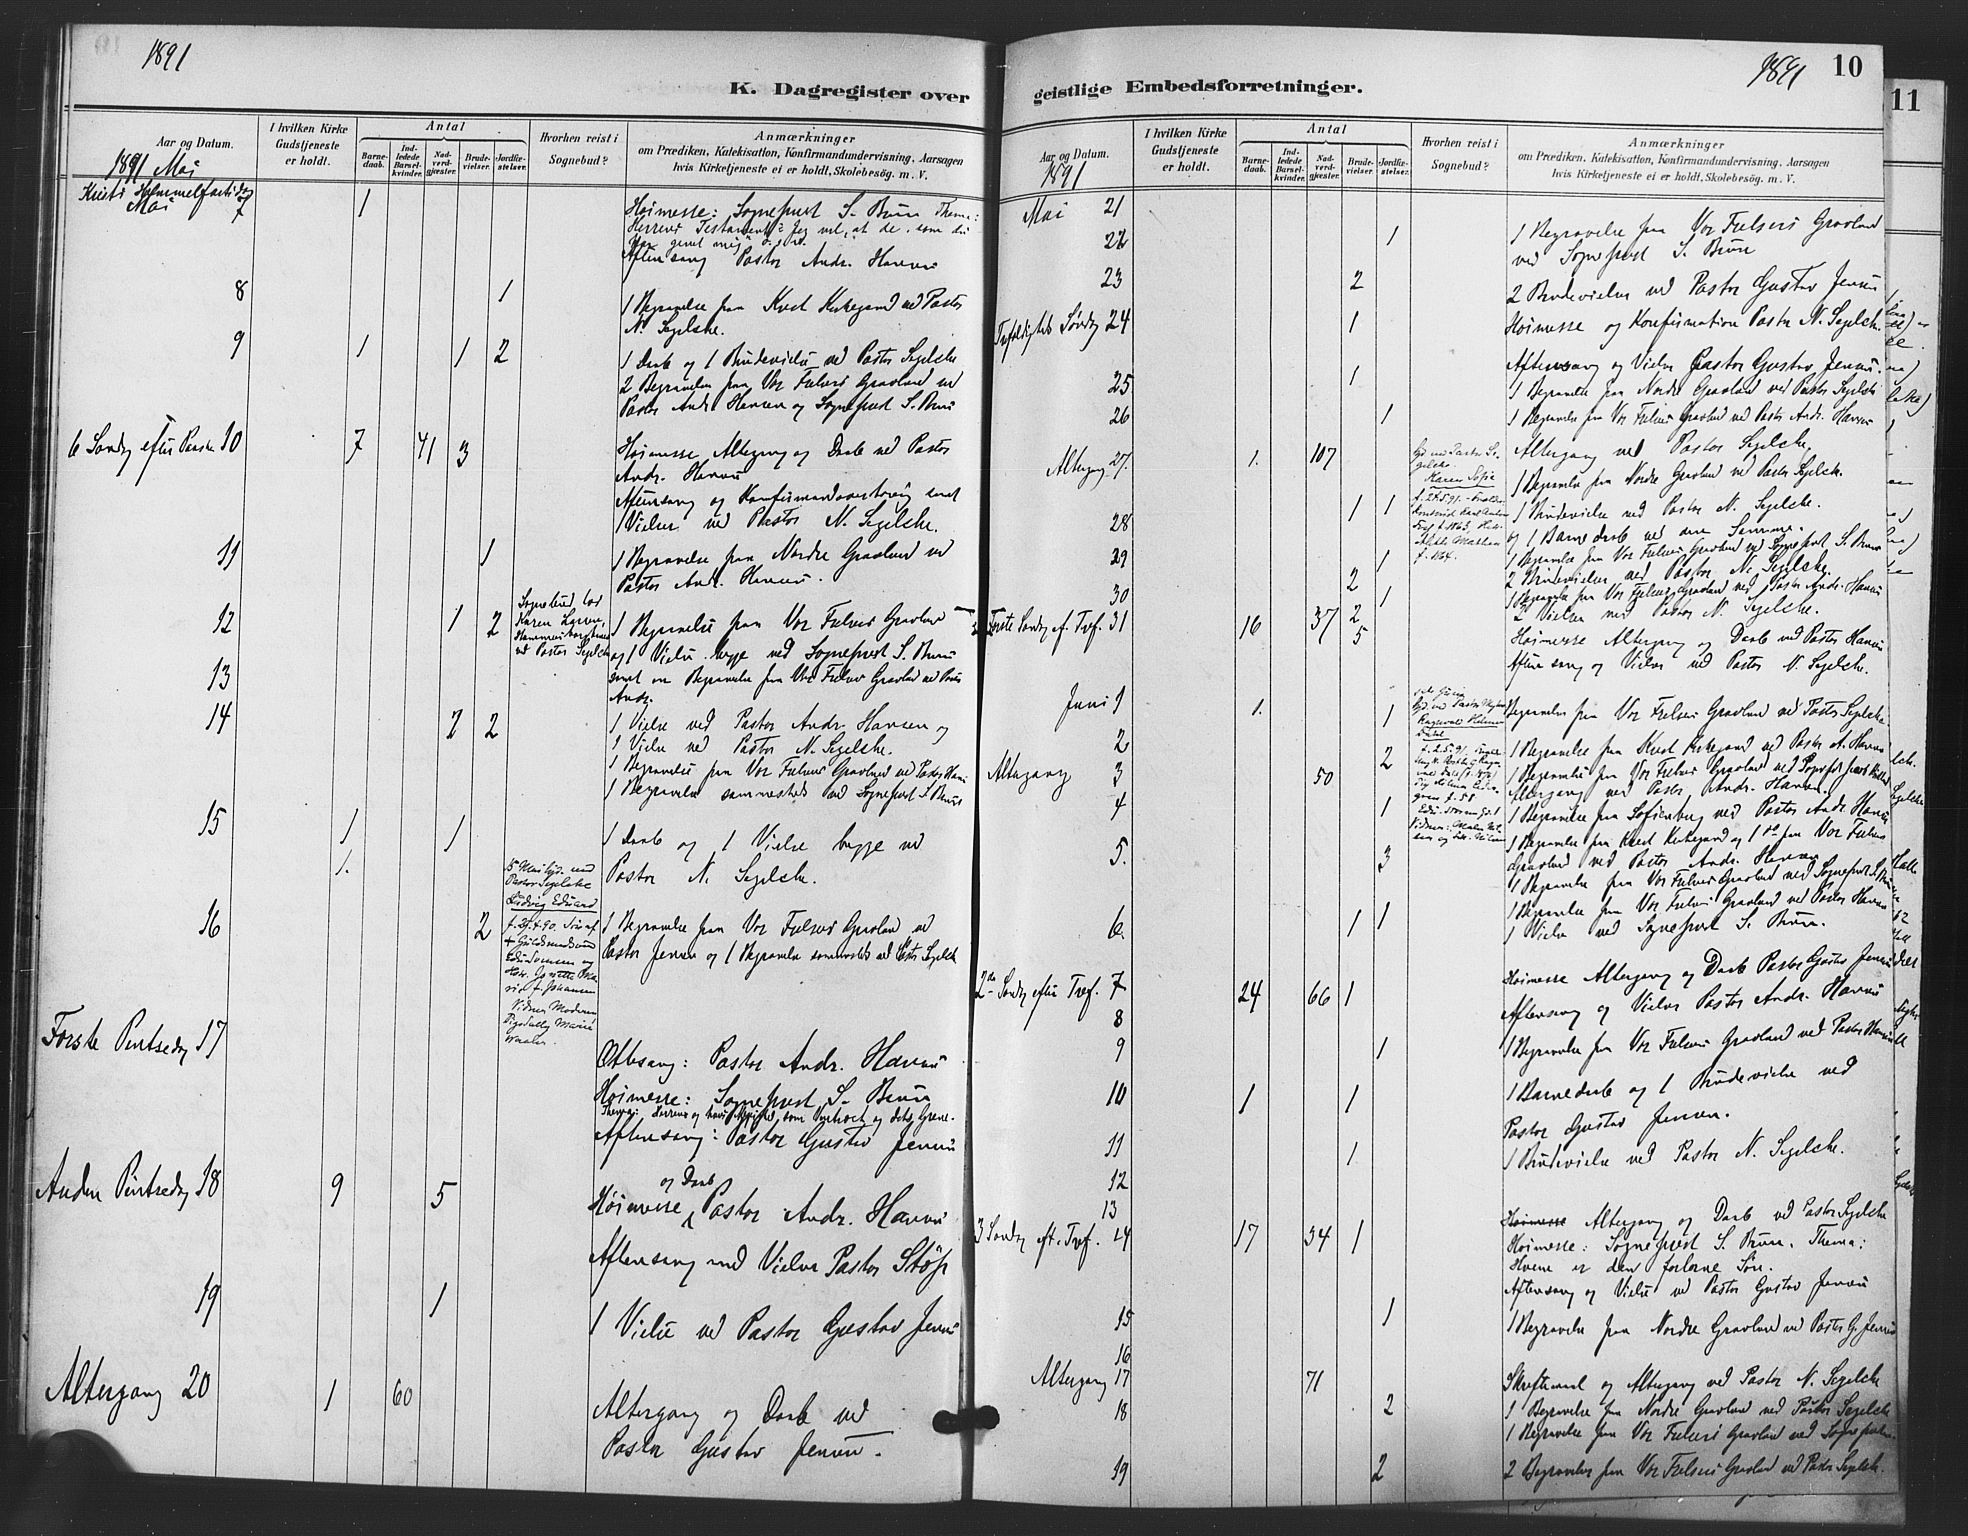 1891
K. Dagregister over
Aar og Datum.
I hvilken Kirke Gudstjeneste er holdt.
Antal
Barnedaab.
Indledede Barselkvinder.
Nadverdgjæster.
Brudevielser.
Jordfæstelser.
Hvorhen reist i Sognebud?
Anmærkninger
om Prædiken, Katekisation, Konfirmandundervisning, Aarsagen
hvis Kirketjeneste ei er holdt, Skolebesøg. m. V.
1891 Mai
Kristi Himmelfartsdag
Mai 7 1 Høimesse: Sognepræst S. Brun Thema:
Herrens Testament: Jeg vil, at de, som du
har givet mig o.s.v.
Aftensang Pastor Andr. Hansen
8 1 1 Begravelse fra Krist Kirkegaard ved Pastor
N. Segelcke.
9 1 1 2 1 Daab og 1 Brudevielse ved Pastor Segelcke
2 Begravelser fra Vor Frelsers Gravlund ved
Pastor Andr Hansen og Sognepræst S. Brun
6 Søndag efter Paaske 10 7 41 3 Høimesse Altergang og Daab ved Pastor
Andr. Hansen
Aftensang og Konfirmandoverhøring samt
1 Vielser ved Pastor N. Segelcke.
11 1 1 Begravelse fra Nordre Gravlund ved
Pastor Andr. Hansen.
12 1 2 Sognebud hos
Karen Larsen,
ved Pastor Segelcke
1 Begravelse fra Vor Frelsers Gravlund
og 1 Vielse begge ved Sognepræst S. Brun
13 samt en Begravelse fra Vor Frelsers Gravlund ved
Andr.
14 2 2 1 Vielse ved Pastor Andr. Hansen og
1 Vielse ved Pastor N. Segelcke.
1 Begravelse fra Vor Frelsers Gravlund ved Pastor Hansen
1 Begravelse sammesteds ved Sognepræst S. Brun
15 1 1 1 Daab og 1 Vielse begge ved
1. Pastor N. Segelcke.
15 Mai hjd. ved
Pastor Segelcke
Ludvig Eduard
16 2 1 Begravelse fra Vor Frelsers Gravlund ved
Pastor Jensen og 1 Begravelse sammesteds ved Pastor Segelcke
f. 29.4.90. Søn af
Vidner Moderen
Første Pintsedag 17
Ottesang: Pastor Andr. Hansen
Høimesse: Sognepræst S. Brun
Aftensang: Pastor Gustav Jensen
Anden Pintsedag 18 9 5 og Daab
Høimesse Pastor Andr. Hansen
Aftensang med Vielser Pastor Støp
19 1 1 Vielse ved Pastor Gustav Jensen
Altergang 20 1 60 Altergang og Daab ved
Pastor Gustav Jensen.
1891 10
11
geistlige Embedsforretninger.
Aar og Datum.
I hvilken Kirke Gudstjeneste er holdt.
Antal
Barnedaab.
Indledede Barselkvinder.
Nadverdgjæster.
Brudevielser.
Jordfæstelser.
Hvorhen reist i Sognebud?
Anmærkninger
om Prædiken, Katekisation, Konfirmandundervisning, Aarsagen
hvis Kirketjeneste ei er holdt, Skolebesøg. m. V.
1891
Mai 21
22 1 1 Begravelse fra Vor Frelsers Gravlund
ved Sognepræst S. Brun
23 2 2 Brudevielser ved Pastor Gustav Jensen
Trefoldigheds Søndag 24 1 Høimesse og Konfirmation Pastor N. Segelcke.
Aftensang og Vielse Pastor Gustav Jensen.
25 1 1 Begravelse fra Nordre Gravlund ved Pastor Segelcke
26 1 1 Begravelse fra Vor Frelsers Gravlund ved Pastor Andr. Hansen
Altergang 27. 1. 107 Altergang ved Pastor Segelcke,
1 Begravelse fra Nordre Gravlund ved Pastor Segelcke.
Karen Sofie
28 1 1 1 Brudevielse ved Pastor N. Segelcke.
og 1 Barnedaab ved den Samme.
29 1 1 Begravelse fra Vor Frelsers Gravlund ved Sognepræst S. Brun
2 2 Brudevielser ved Pastor N. Segelcke
30 1 1 Begravelse fra Vor Frelsers Gravlund ved Pastor Andr. Hansen
2 2 Vielser ved Pastor N. Segelcke.
Første Søndag ef. Tref. 31 16 37 5 Høimesse Altergang og Daab ved Pastor Hansen
Aftensang og Vielser ved Pastor N. Segelcke.
Juni 1 1. 1 Begravelse fra Vor Frelsers Gravlund ved Pastor Segelcke
2 2 1 Begravelse fra Krist Kirkegaard ved Pastor A. Hansen
1 Begravelse fra Vor Frelsers Gravlund ved
Altergang 3 50 Altergang ved Pastor Andr. Hansen.
4 1 1 Begravelse fra Sofienberg ved Pastor Andr Hansen
5. 3 1 Begravelse fra Krist Kirkegaard og 1 do fra Vor Frelsers
Gravlund ved Pastor Andr. Hansen
1 Begravelse fra Vor Frelsers Gravlund ved Sognepræst S. Brun
6. 1 1 1 Begravelse fra Vor Frelsers Gravlund ved Pastor Hansen
1 Vielse ved Sognepræst S. Brun.
2den Søndag efter Tref. 7 24 66 1 Høimesse Altergang og Daab Pastor Gustav Jensen
Aftensang og Vielser Pastor Andr. Hansen
8
9 1 1 Begravelse fra Vor Frelsers Gravlund ved Pastor Hansen
10 1 1 1 Barnedaab og 1 Brudevielse ved
Pastor Gustav Jensen.
11 1 1 Brudevielse ved Pastor N. Segelcke.
12
13
3 Søndag eft. Tref. 14 17 34 1 Høimesse Altergang og Daab ved Pastor Segelcke
Høimesse: Sognepræst S. Brun. Thema:
Hvem er den forlorne Søn.
Aftensang og Vielse ved Pastor Gustav Jensen
15 1 1 Begravelse fra Nordre Gravlund ved Pastor G. Jensen
16
Altergang 17 71 Skriftemaal og Altergang ved Pastor N. Segelcke
18 2 1 Begravelse fra Nordre Gravlund ved Pastor Segelcke
1 Begravelse fra Vor Frelsers Gravlund ved Sognepræsten.
19 2 2 Begravelser fra Vor Frelsers Gravlund ved Pastor Segelcke.